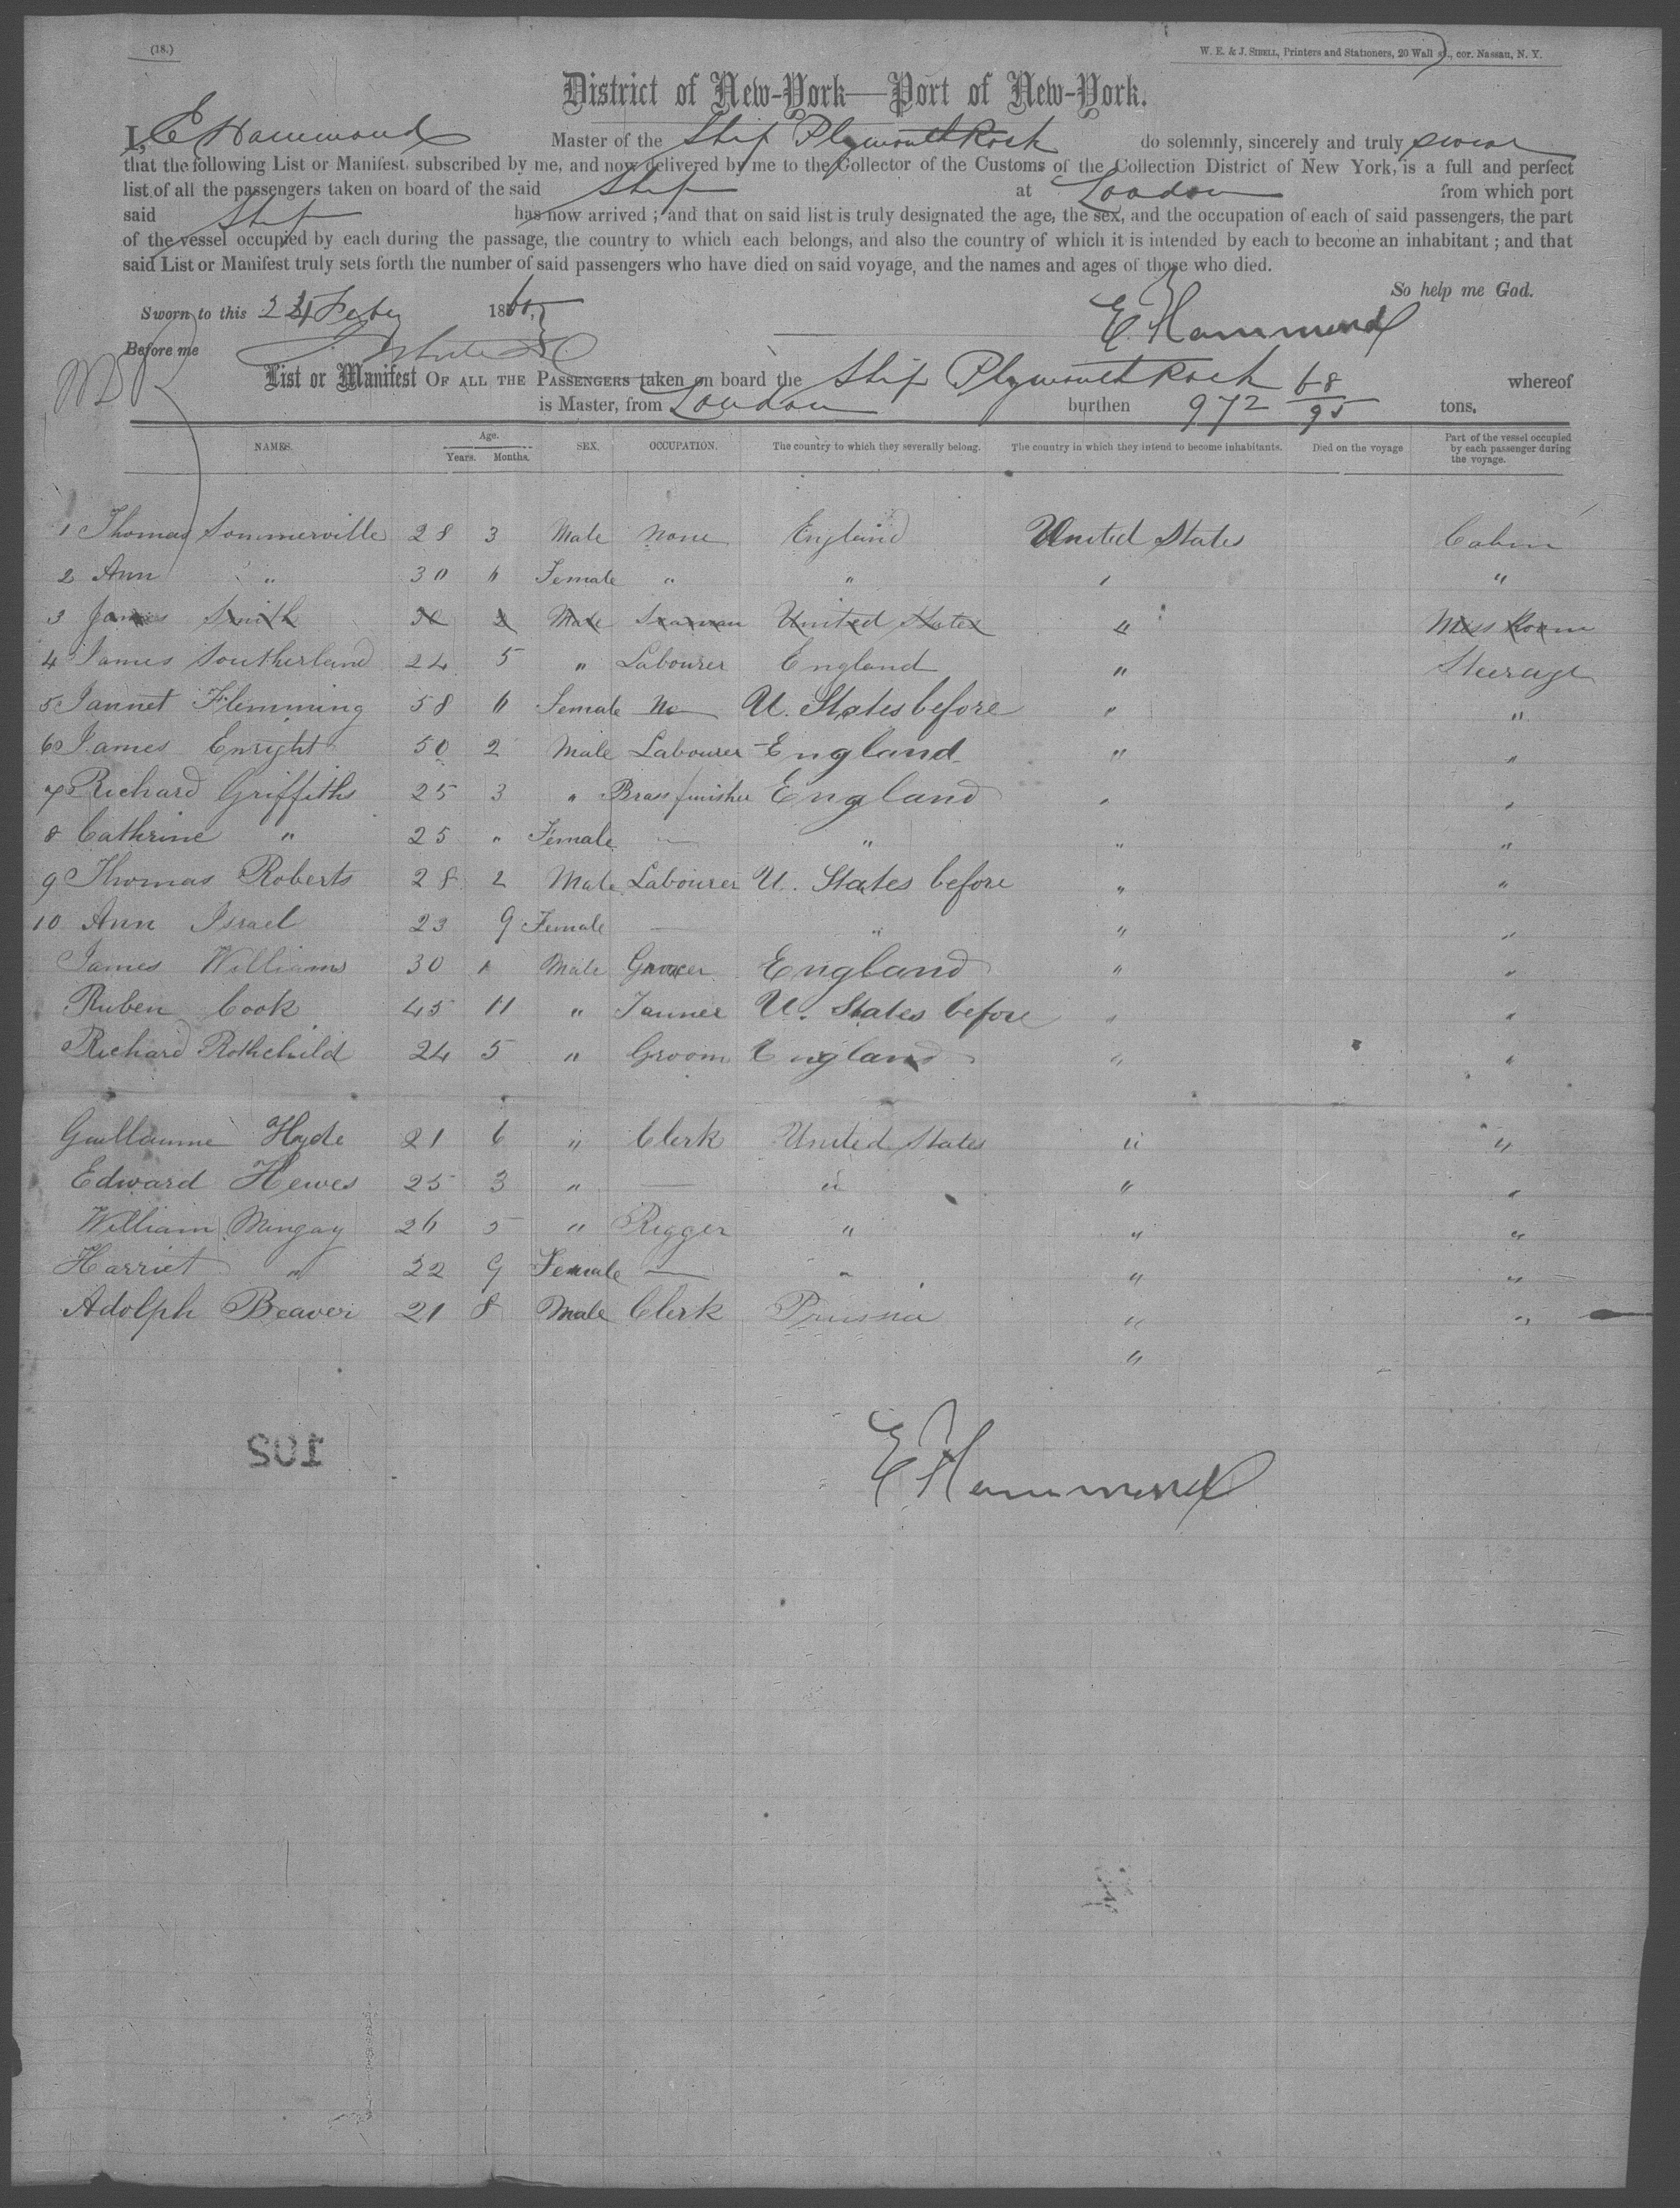 (18.)
W. E. & J. Sibell, Printers and Stationers, 20 Wall st., cor. Nassau, N. Y.
District of New-York—Port of New-York.
I, E Hammond Master of the Ship Plymouth Rock do solemnly, sincerely and truly swear
that the following List or Manifest, subscribed by me, and now delivered by me to the Collector of the Customs of the Collection District of New York, is a full and perfect
list of all the passengers taken on board of the said Ship at London from which port
said Ship has now arrived; and that on said list is truly designated the age, the sex, and the occupation of each of said passengers, the part
of the vessel occupied by each during the passage, the country to which each belongs, and also the country of which it is intended by each to become an inhabitant; and that
said List or Manifest truly sets forth the number of said passengers who have died on said voyage, and the names and ages of those who died.
So help me God.
Sworn to this 24 Feby 1865,
E. Hammond
Before me
List or Manifest OF ALL THE PASSENGERS taken on board the Ship Plymouth Rock whereof
is Master, from London burthen 972 68/95 tons.
NAMES. Age. Years. Months. SEX. OCCUPATION. The country to which they severally belong. The country in which they intend to become inhabitants. Died on the voyage Part of the vessel occupied by each passenger during the voyage.
1 Thomas Sommerville 28 3 Male None England United States Cabin
2 Ann " 30 " Female " " " "
3 James Smith 30 2 Male Seaman United States " Mess Room
4 James Southerland 24 5 " Labourer England " Steerage
5 Jannet Flemming 58 " Female No U. States before " "
6 James Enright 50 2 Male Labourer England " "
7 Richard Griffiths 25 3 " Brass finisher England " "
8 Cathrine " 25 " Female — " " "
9 Thomas Roberts 28 2 Male Labourer U. States before " "
10 Ann Israel 23 9 Female — " " "
James Williams 30 1 Male Grocer England " "
Ruben Cook 45 11 " Tanner U. States before " "
Richard Rothchild 24 5 " Groom England " "
Guillaume Hyde 21 6 " Clerk United States " "
Edward Hewes 25 3 " — " " "
William Mingay 26 5 " Rigger " " "
Harriet " 22 9 Female — " " "
Adolph Beaver 21 8 Male Clerk Prussia " "
"
102
E Hammond